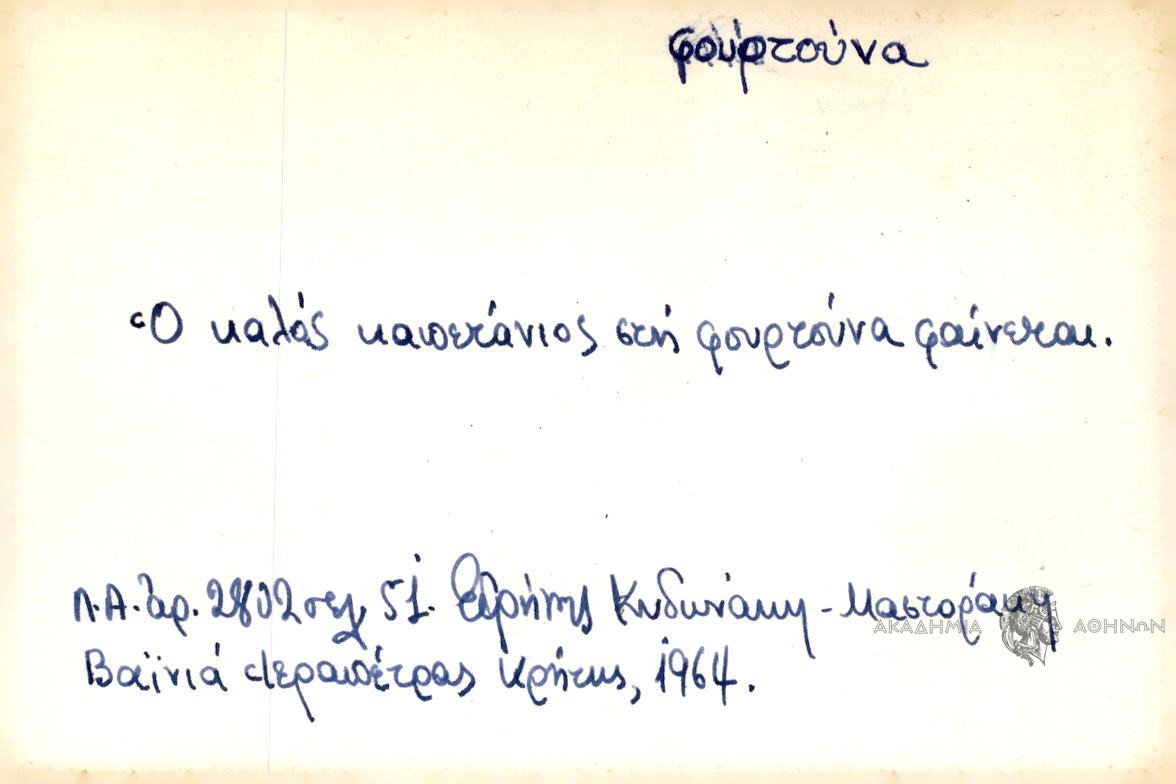 φουρτούνα
Ὁ καλός καπετάνιος στή φουρτούνα φαίνεται.
Λ.Α. ἀρ. 2802 σελ. 51. Εἰρήνης Κυδωνάκη - Μαστοράκη
ΑΚΑΔΗΜΙΑ ΑΘΗΝΩΝ
Βαϊνιά Ἱεραπέτρας Κρήτης, 1964.